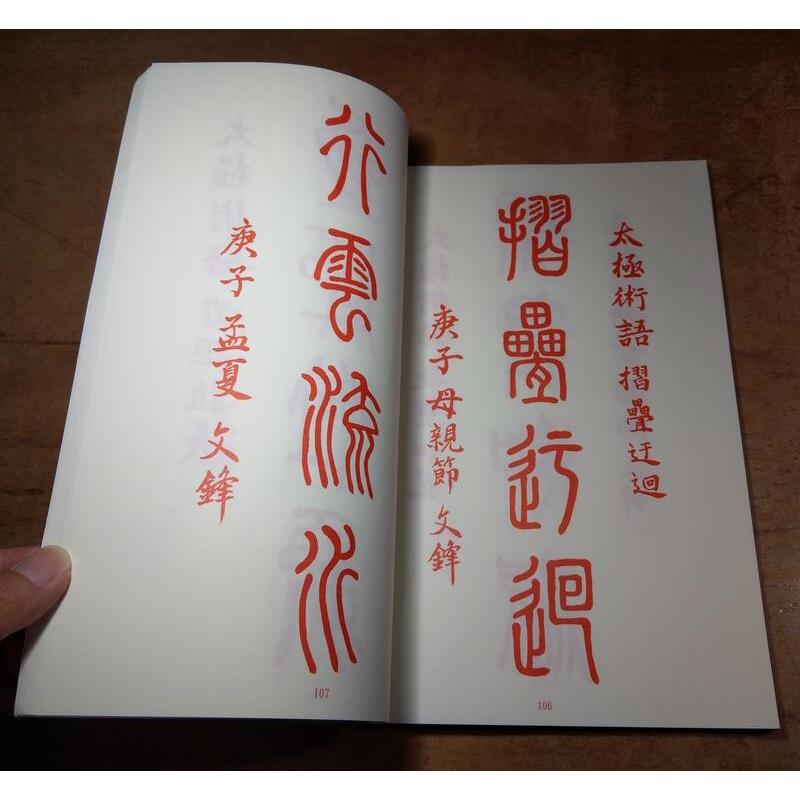 行雲流水
庚子孟夏 文鋒
107
太極術語 摺疊迂迴
摺疊迂迴
庚子母親節 文鋒
108